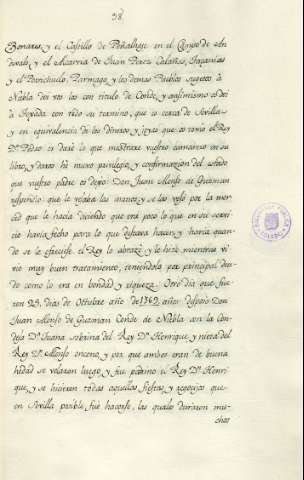 38.
Bonares, y el Castillo de Peñalhage en el Campo de An
devalo, y el Alcarria de Juan Perez Calañas, Fazanias
y el Portichuelo, Paymogo, y los demas Pueblos sugetos à
Niebla dei vos los con titulo de Conde, y assimismo el dei
à con todo su termino, que es cerca de Sevilla
y en equivalencia de los dineros y joyas que os tomo el Rey
Dⁿ. Pedro os daré lo que mostrare vuestro camarero en su
libro, y daros hà nuevo privilegio, y confirmazion del estado
que vuestro padre os dejó: Don Juan Alonso de Guzman
respondio que le besaba las manos, y se las besó por la mer
ced que le hacía diciendo que era poco lo que en su servi
cio havia fecho para lo que deseava hacer, y haria quan
do se le ofreciese. el Rey lo abrazó, y le hizo mientras vi
vio muy buen tratamiento, teniendolo por principal deu
do como lo era en bondad y riqueza. Otro dia que fue
ron 29. dias de Octubre año de 1369. años desposó Don
Juan Alonso de Guzman Conde de Niebla con la Con
deja Dª. Juana sobrina del Rey Dⁿ. Henrique, y nieta del
Rey Dⁿ. Alonso onceno, y por que ambos eran de buena
hedad se velaron luego, y fue padrino el Rey Dⁿ. Henri
que, y se hicieron todas aquellas fiestas, y regocijos que
en Sevilla posible fué hacerse, las quales duraron mu
chos